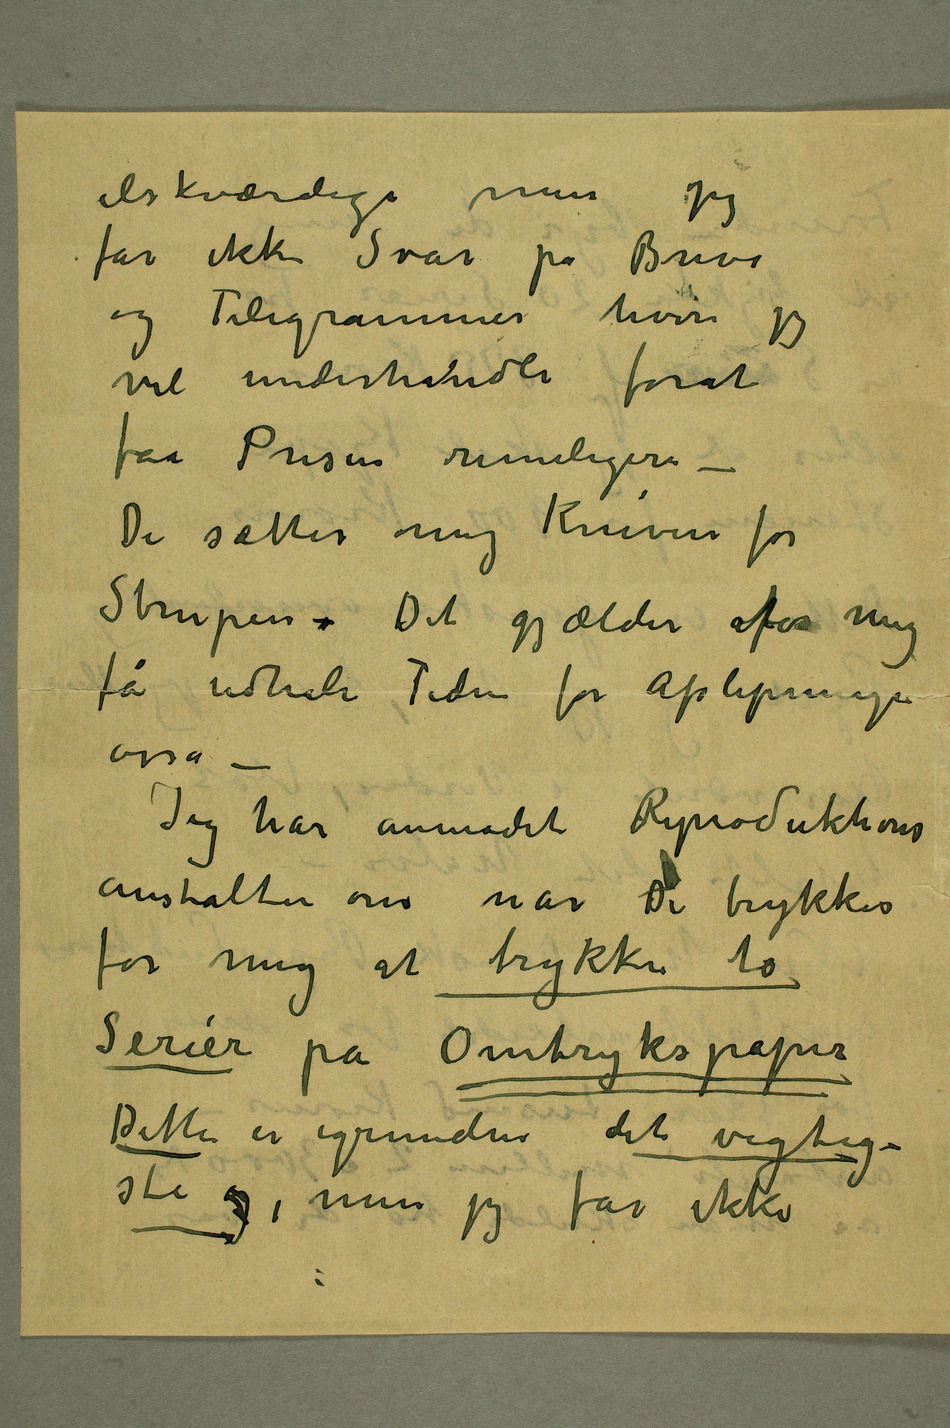 elskværdige men jeg
får ikke Svar på Breve
og Telegrammer hvori jeg
vil underhandle forat
faa Prisen rimeligere –
De sætter mig Kniven for
Strupen. Det gjælder for mig
få udhale Tiden for Afslepninge
osså –
Jeg har anmodet Reproduktions
anstalten om når De trykkes
for mig at trykke to
Seriér på Omtrykspapir
Dette er igrunden det vigtig-
ste, men jeg får ikke